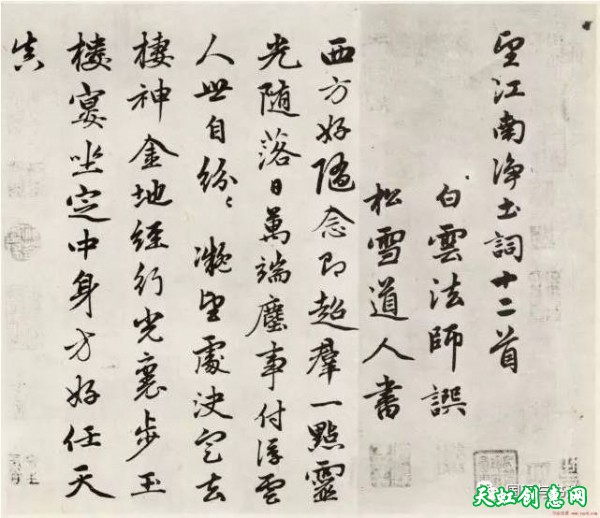 望江南净土詞十二首
白雲法師譔
松雪道人書
西方好隨念即超羣一點靈
光随落日萬端塵事付浮雲
人世自紛〻凝望處決定去
棲神金地經行光裏步玉
樓宴坐定中身方好任天
真
天虹创意网